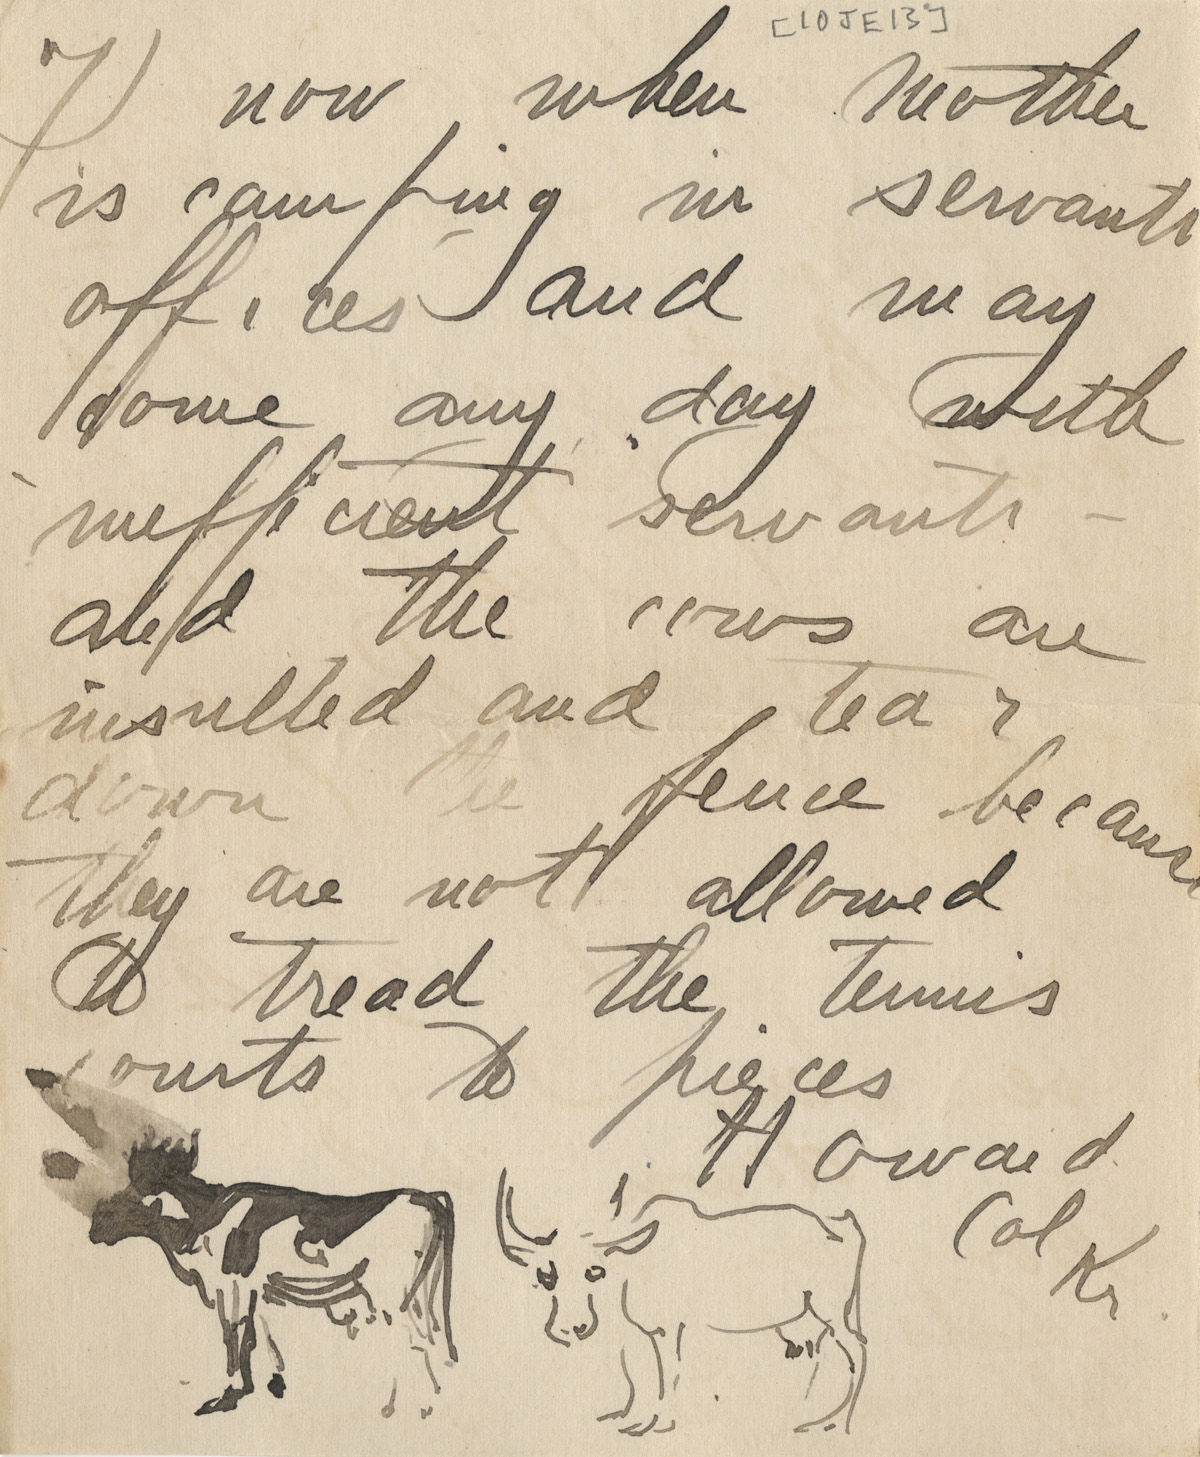 [10JE13]
now when Mother
is camping in servants
offices and may
come any day with
inefficient servants -
and the cows are
insulted and tear
down the fence because
they are not allowed
to tread the tennis
courts to pieces
Howard
Col
Kr